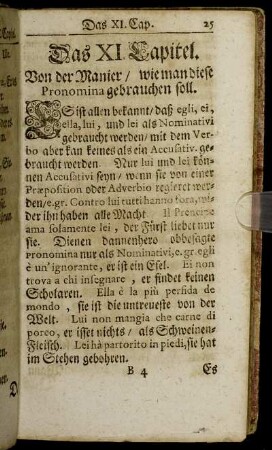 Das XI. Cap. 25
Das XI. Capitel.
Von der Manier / wie man diese
Pronomina gebrauchen soll.
ES ist allen bekannt/ daß egli, ei,
ella, lui, und lei als Nominativi
gebraucht werden/ mit dem Ver-
bo aber kan keines als ein Accusativ. ge-
braucht werden. Nur lui und lei kön-
nen Accusativi seyn/ wenn sie von einer
Præposition oder Adverbio regieret wer-
den/ e.gr. Contro lui tutti hanno forza, wi-
der ihn haben alle Macht Il Prencipe
ama solamente lei, der Fürst liebet nur
sie. Dienen dannenhero obbesagte
pronomina nur als Nominativi, e.gr. egli
è un' ignorante, er ist ein Esel. Ei non
trova a chi insegnare, er findet keinen
Scholaren. Ella è la più perfida de
mondo, sie ist die untreueste von der
Welt. Lui non mangia che carne di
porco, er isset nichts/ als Schweinen-
Fleisch. Lei hà partorito in piedi, sie hat
im Stehen gebohren.
B 4 Es